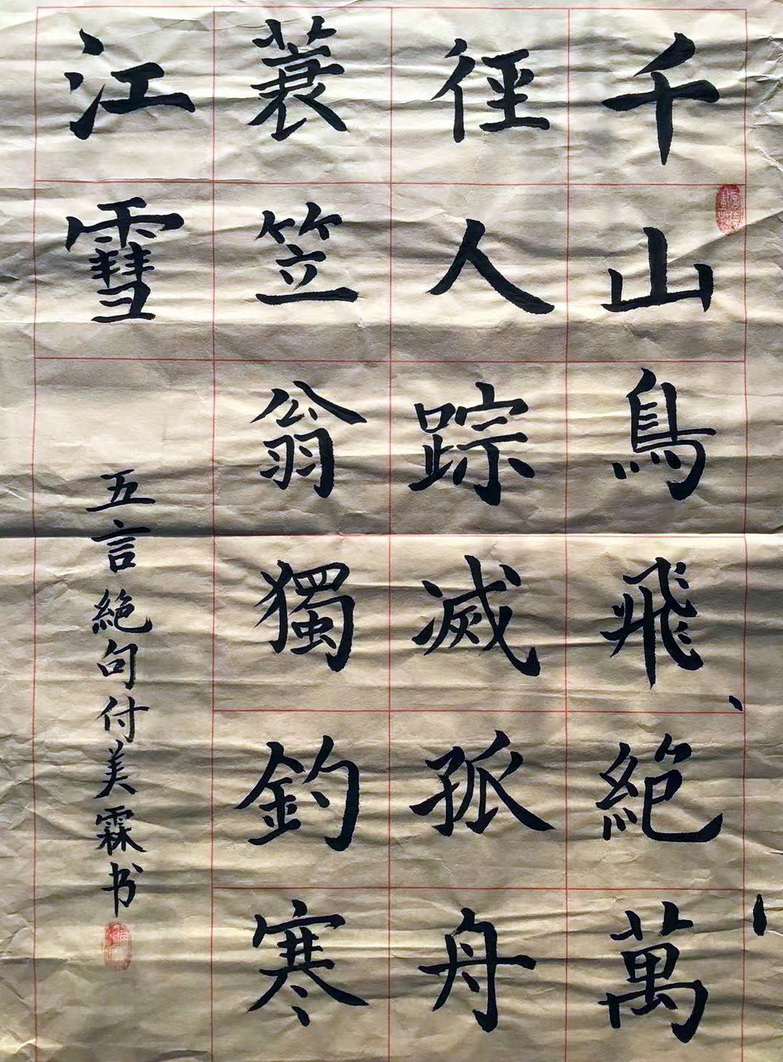 千山鳥飛絕萬
徑人踪滅孤舟
蓑笠翁獨釣寒
江雪
五言絕句付美霖书